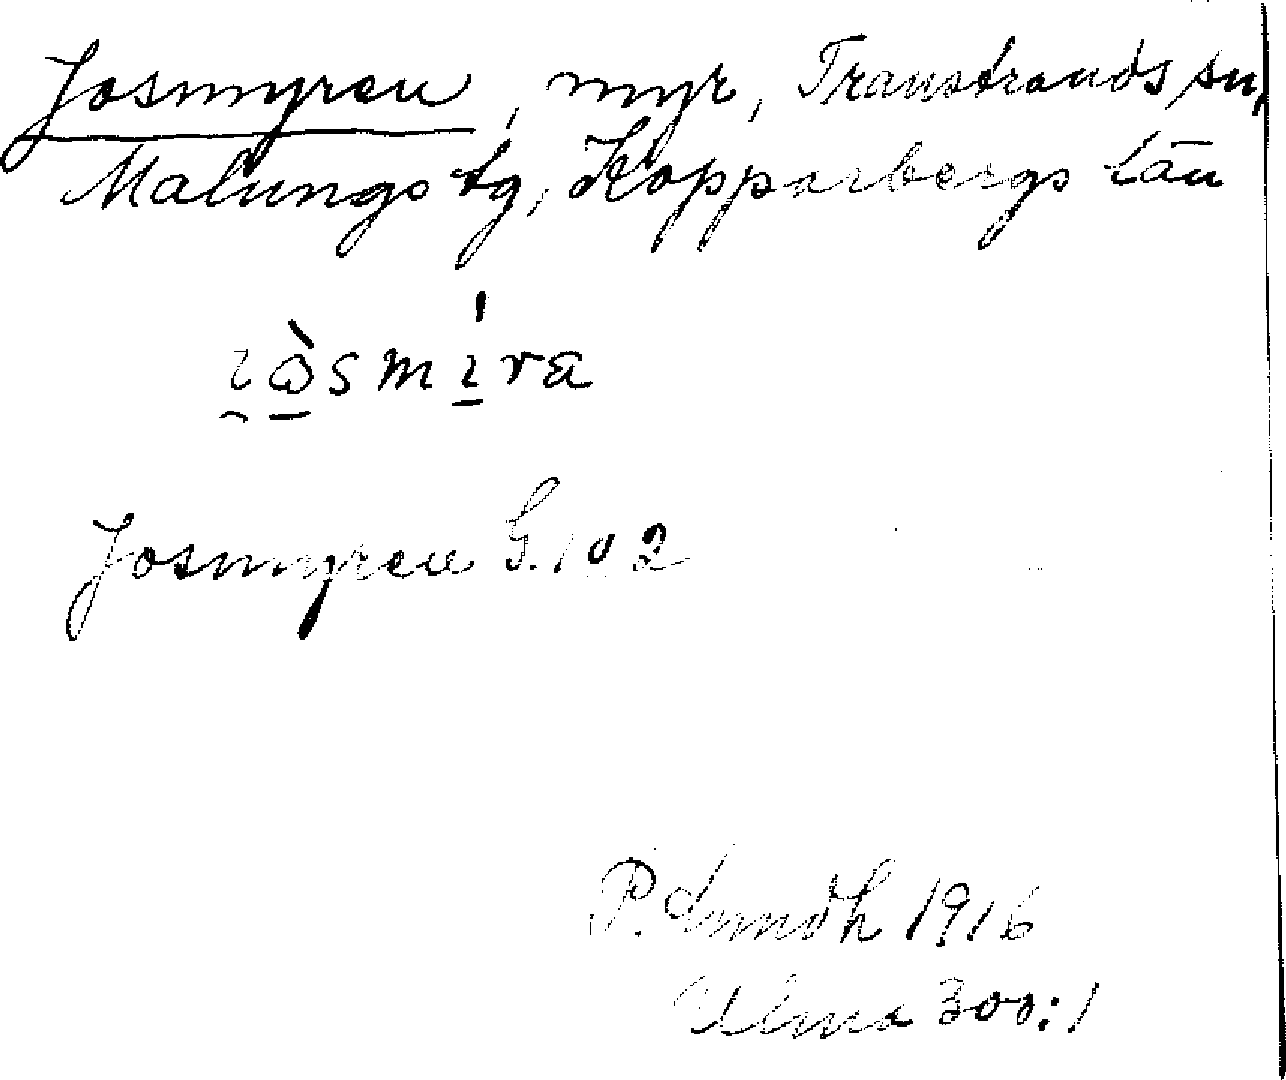 Josmyren, myr, Transtrands sn,
Malungs tg, Kopparbergs län
Josmyren G. 102
P. Lundh 1916
Ulma 300:1